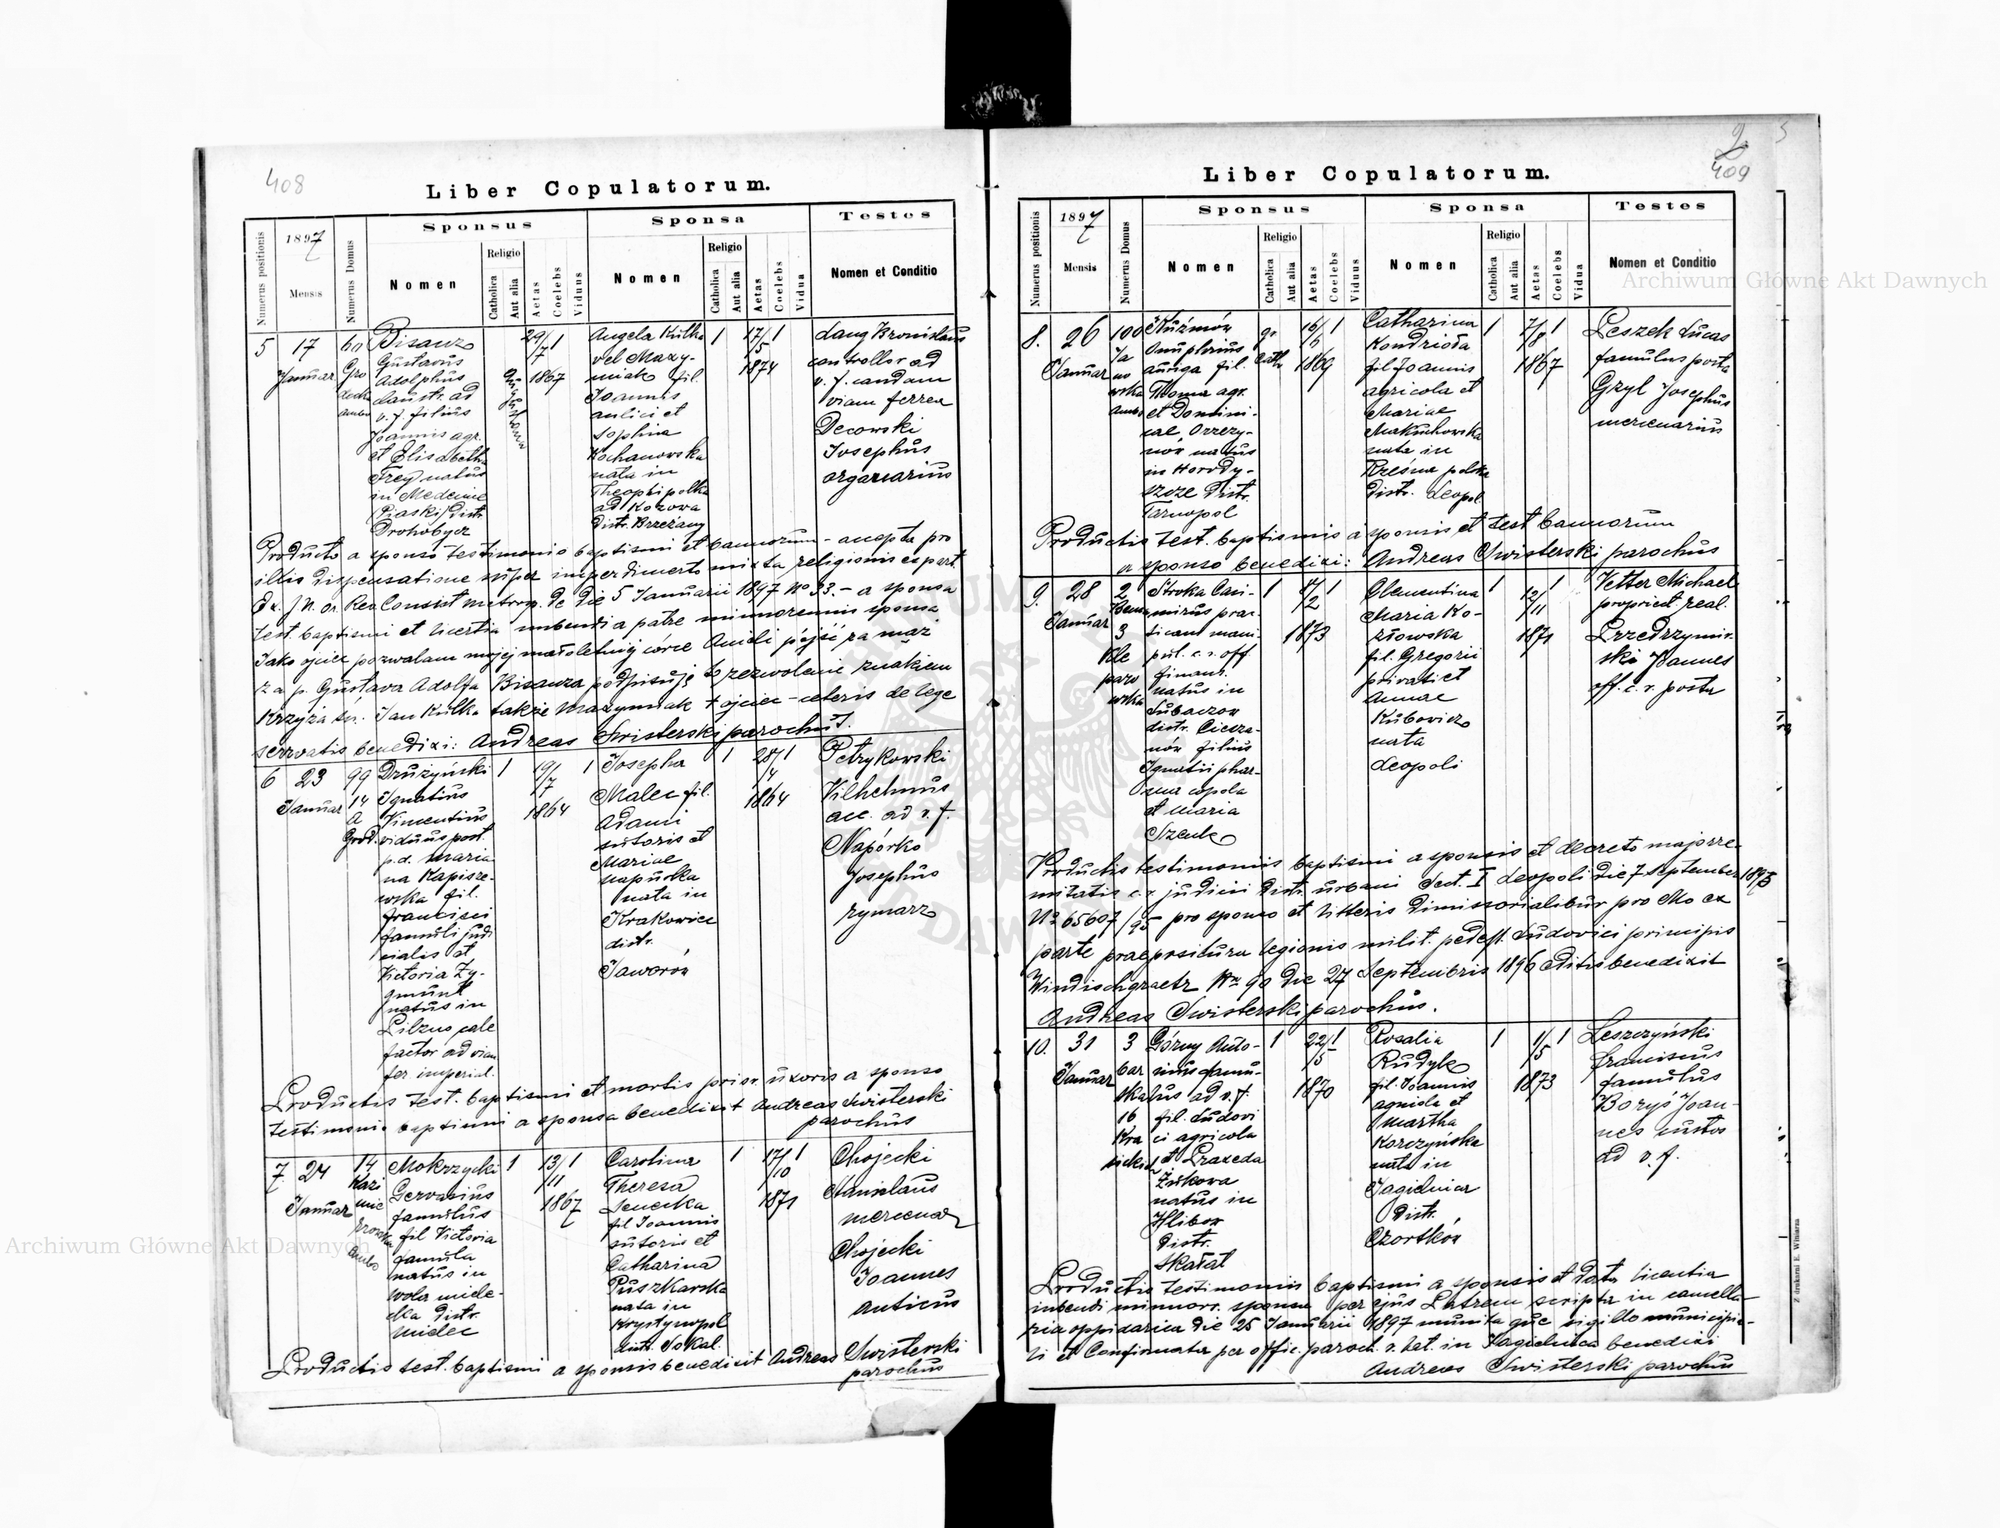 408
Liber Copulatorum.
Numerus positionis
1897
Mensis
Numerus Domus
Sponsus
Nomen
Religio
Catholica
Aut alia
Aetas
Coelebs
Viduus
Sponsa
Nomen
Religio
Catholica
Aut alia
Aetas
Coelebs
Vidua
Testes
Nomen et Conditio
5
17
Januar
60
Gro
decka
Bisanz
Gustavus
Adolphus
laustr. ad
v. f. filius
Joannis agr.
et Elisabetha
Frey natus
in Medenice
(Piaski) distr.
Drohobycz
29/7 1
1867
Angela Kulka
vel Mazy-
miak fil.
Joannis
aulici et
Sophia
Kochanowska
nata in
Theophipolka
ad Kozowa
distr. Brzeżany
1
17/5 1
1874
Lang Bronislaus
controllor ad
v. f. eandem
viam ferrea
Decowski
Josephus
organarius
Producto a sponso testimonio baptismi et bannorum - accepta pro
illis dispensatione super impedimento mixta religionis ex part.
Ex. J. N. or. Rev. Consist metrop. de die 5 Januarii 1897 No 33. - a sponsa
test. baptismi et licentia nubendi a patre minorennis sponsa
Jako ojciec pozwalam mojej małoletniej córce Anieli pójść za mąż
za p. Gustava Adolfa Bisanza podpisuję to zezwolenie znakiem
Krzyża św. Jan Kulka także Mazymiak + ojciec - ceteris de lege
servatis benedixi: Andreas Swisterski parochus.
6
23
Januar
99
14
a
Grod.
Drużyński
Ignatius
Vincentius
viduus post
p. d. Maria
na Kapisze-
wska fil.
Francisci
famuli judi
cialis et
Victoria Zy-
gmunt
natus in
Pilzno cale
factor ad viam
fer. imperial.
1
19/7 1
1864
Josepha
Malec fil.
Adami
sutoris et
Mariae
Napurka
nata in
Krakowiec
distr.
Jaworów
1
28/4 1
1864
Petrykowski
Vilhelmus
acc. ad v. f.
Napórko
Josephus
rymarz
Productis test. baptismi et mortis prior. uxoris a sponso
testimonio baptismi a sponsa benedixit Andreas Swisterski
parochus
7
24
Januar
14
Kazi
mie
rzowska
Mokrzycki
Gervasius
famulus
fil Victoria
famula
natus in
Wola miele-
cka distr.
Mielec
1
13/11 1
1867
Carolina
Theresa
Senecka
fil Joannis
sutoris et
Catharina
Puszkarska
nata in
Krystynopol
distr. Sokal.
1
17/10 1
1871
Chojecki
Stanislaus
mercenar
Chojecki
Joannes
anticus
Productis test. baptismi a sponsis benedixit Andreas Swisterski
parochus
409
Liber Copulatorum.
Numerus positionis
1897
Mensis
Numerus Domus
Sponsus
Nomen
Religio
Catholica
Aut alia
Aetas
Coelebs
Viduus
Sponsa
Nomen
Religio
Catholica
Aut alia
Aetas
Coelebs
Vidua
Testes
Nomen et Conditio
8.
26
Januar
100
Ja
no
wska
Kuźmów
Onuphrius
auriga fil.
Thoma agr.
et Domini-
cae Orzezy-
nów natus
in Horody-
szcze distr.
Tarnopol
gr.
cath
16/6 1
1869
Catharina
Kondzioła
fil Joannis
agricola et
Mariae
Makuchowska
nata in
Rzesna polska
distr. Leopol
1
7/8 1
1867
Leszek Lucas
famulus posta
Gzyl Josephus
mercenarius
Productis test. baptismis a sponsis et test bannorum
a sponso benedixi: Andreas Swisterski parochus
9.
28
Januar
2
3
Kle
paro
wska
Stroka Casi-
mirus prac-
ticans mani-
pul. c. r. off.
finans.
natus in
Lubaczow
distr. Ciesza-
nów filius
Ignatii phar-
ma copola
et Maria
Szenk
1
17/2 1
1873
Clementina
Maria Ko-
złowska
fil. Gregorii
privati et
Annae
Kubowicz
nata
Leopoli
1
12/11 1
1871
Vetter Michael
propriet. real.
Przedrzymir-
ski Joannes
off. c. r. posta
Productis testimoniis baptismi a sponsis et decreto majorre-
nitatis c. r. judicii distr. urbani Sect. I Leopoli die 7 September 1895
No 65607/95 pro sponso et litteris dimissorialibus pro eo ex
parte praepositura legionis milit. pedest. Ludovici principis
Windischgraetz No 90 die 27 Septembris 1896 editis benedixit
Andreas Swisterski parochus.
10.
31
Januar
3
bar
ska
16
Kra
sickich
Górny Anto-
nius famu-
lus ad v. f.
fil. Ludovi
ci agricola
et Praxeda
Żukowa
natus in
Hlibow
distr.
Skałat
1
22/5 1
1870
Rosalia
Rudyk
fil. Joannis
agricola et
Martha
Korczyńska
nata in
Jagielnica
distr.
Czortków
1
1/5 1
1873
Leszczyński
Franciscus
famulus
Boryś Joan-
nes custos
ad v. f.
Productis testimoniis baptismi a sponsis et data licentia
nubendi minorr. sponsa per ejus Patrem scripta in cancella-
ria oppidanica die 25 Januarii 1897 munita que sigillo municipia-
li et confirmata per offic. paroch. r. lat. in Jagielnica benedixi
Andreas Swisterski parochus
Z drukarni E. Winiarza
Archiwum Główne Akt Dawnych
Archiwum Główne Akt Dawnych